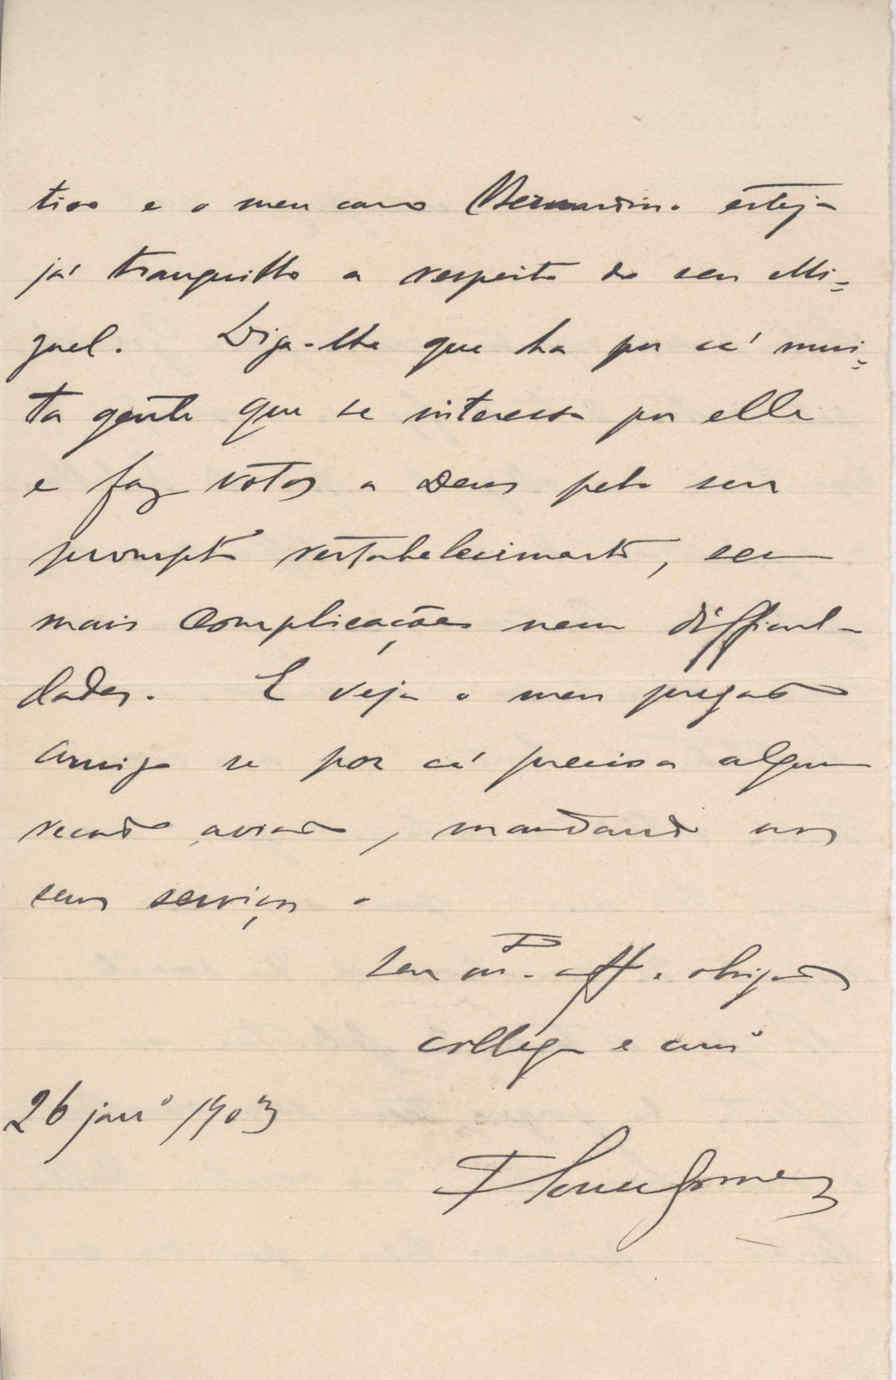 tivo e o meu caro Bernardino esteja
já tranquillo a respeito do seu Mi=
guel. Diga-lhe que ha por cá mui=
ta gente que se interessa por elle
e faz votos a Deus pelo seu
prompto restabelecimento, sem
mais complicações nem difficul-
dades. E veja o meu presado
amigo se por cá precisa algum
recado aviado, mandando aos
seus serviços o
Seu mto. aff. obrigado
collega e amo
26 janro 1903